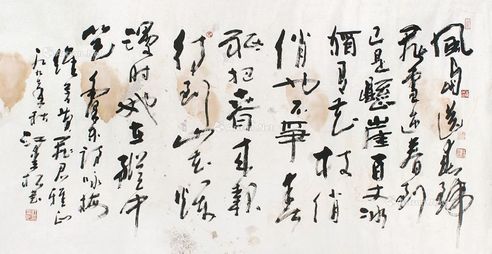 風雨送春歸
飛雪迎春到
已是懸崖百丈冰
猶有花枝俏
俏也不爭春
祇把春來報
待到山花爛
漫時她在叢中
笑 毛澤東詩詠梅
君雅正
年秋 江 書